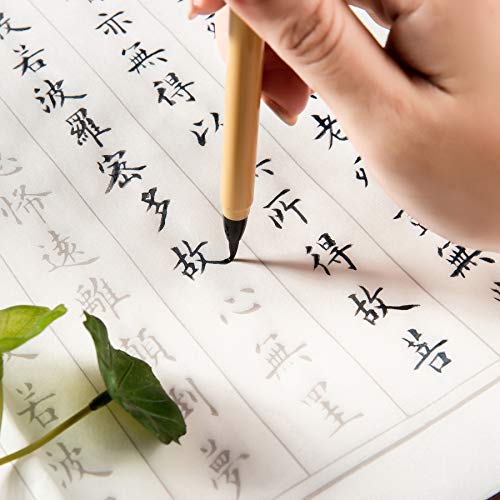 老死無
亦無得以無所得故菩
般若波羅密多故心無罣
怖遠離顛倒夢
若波